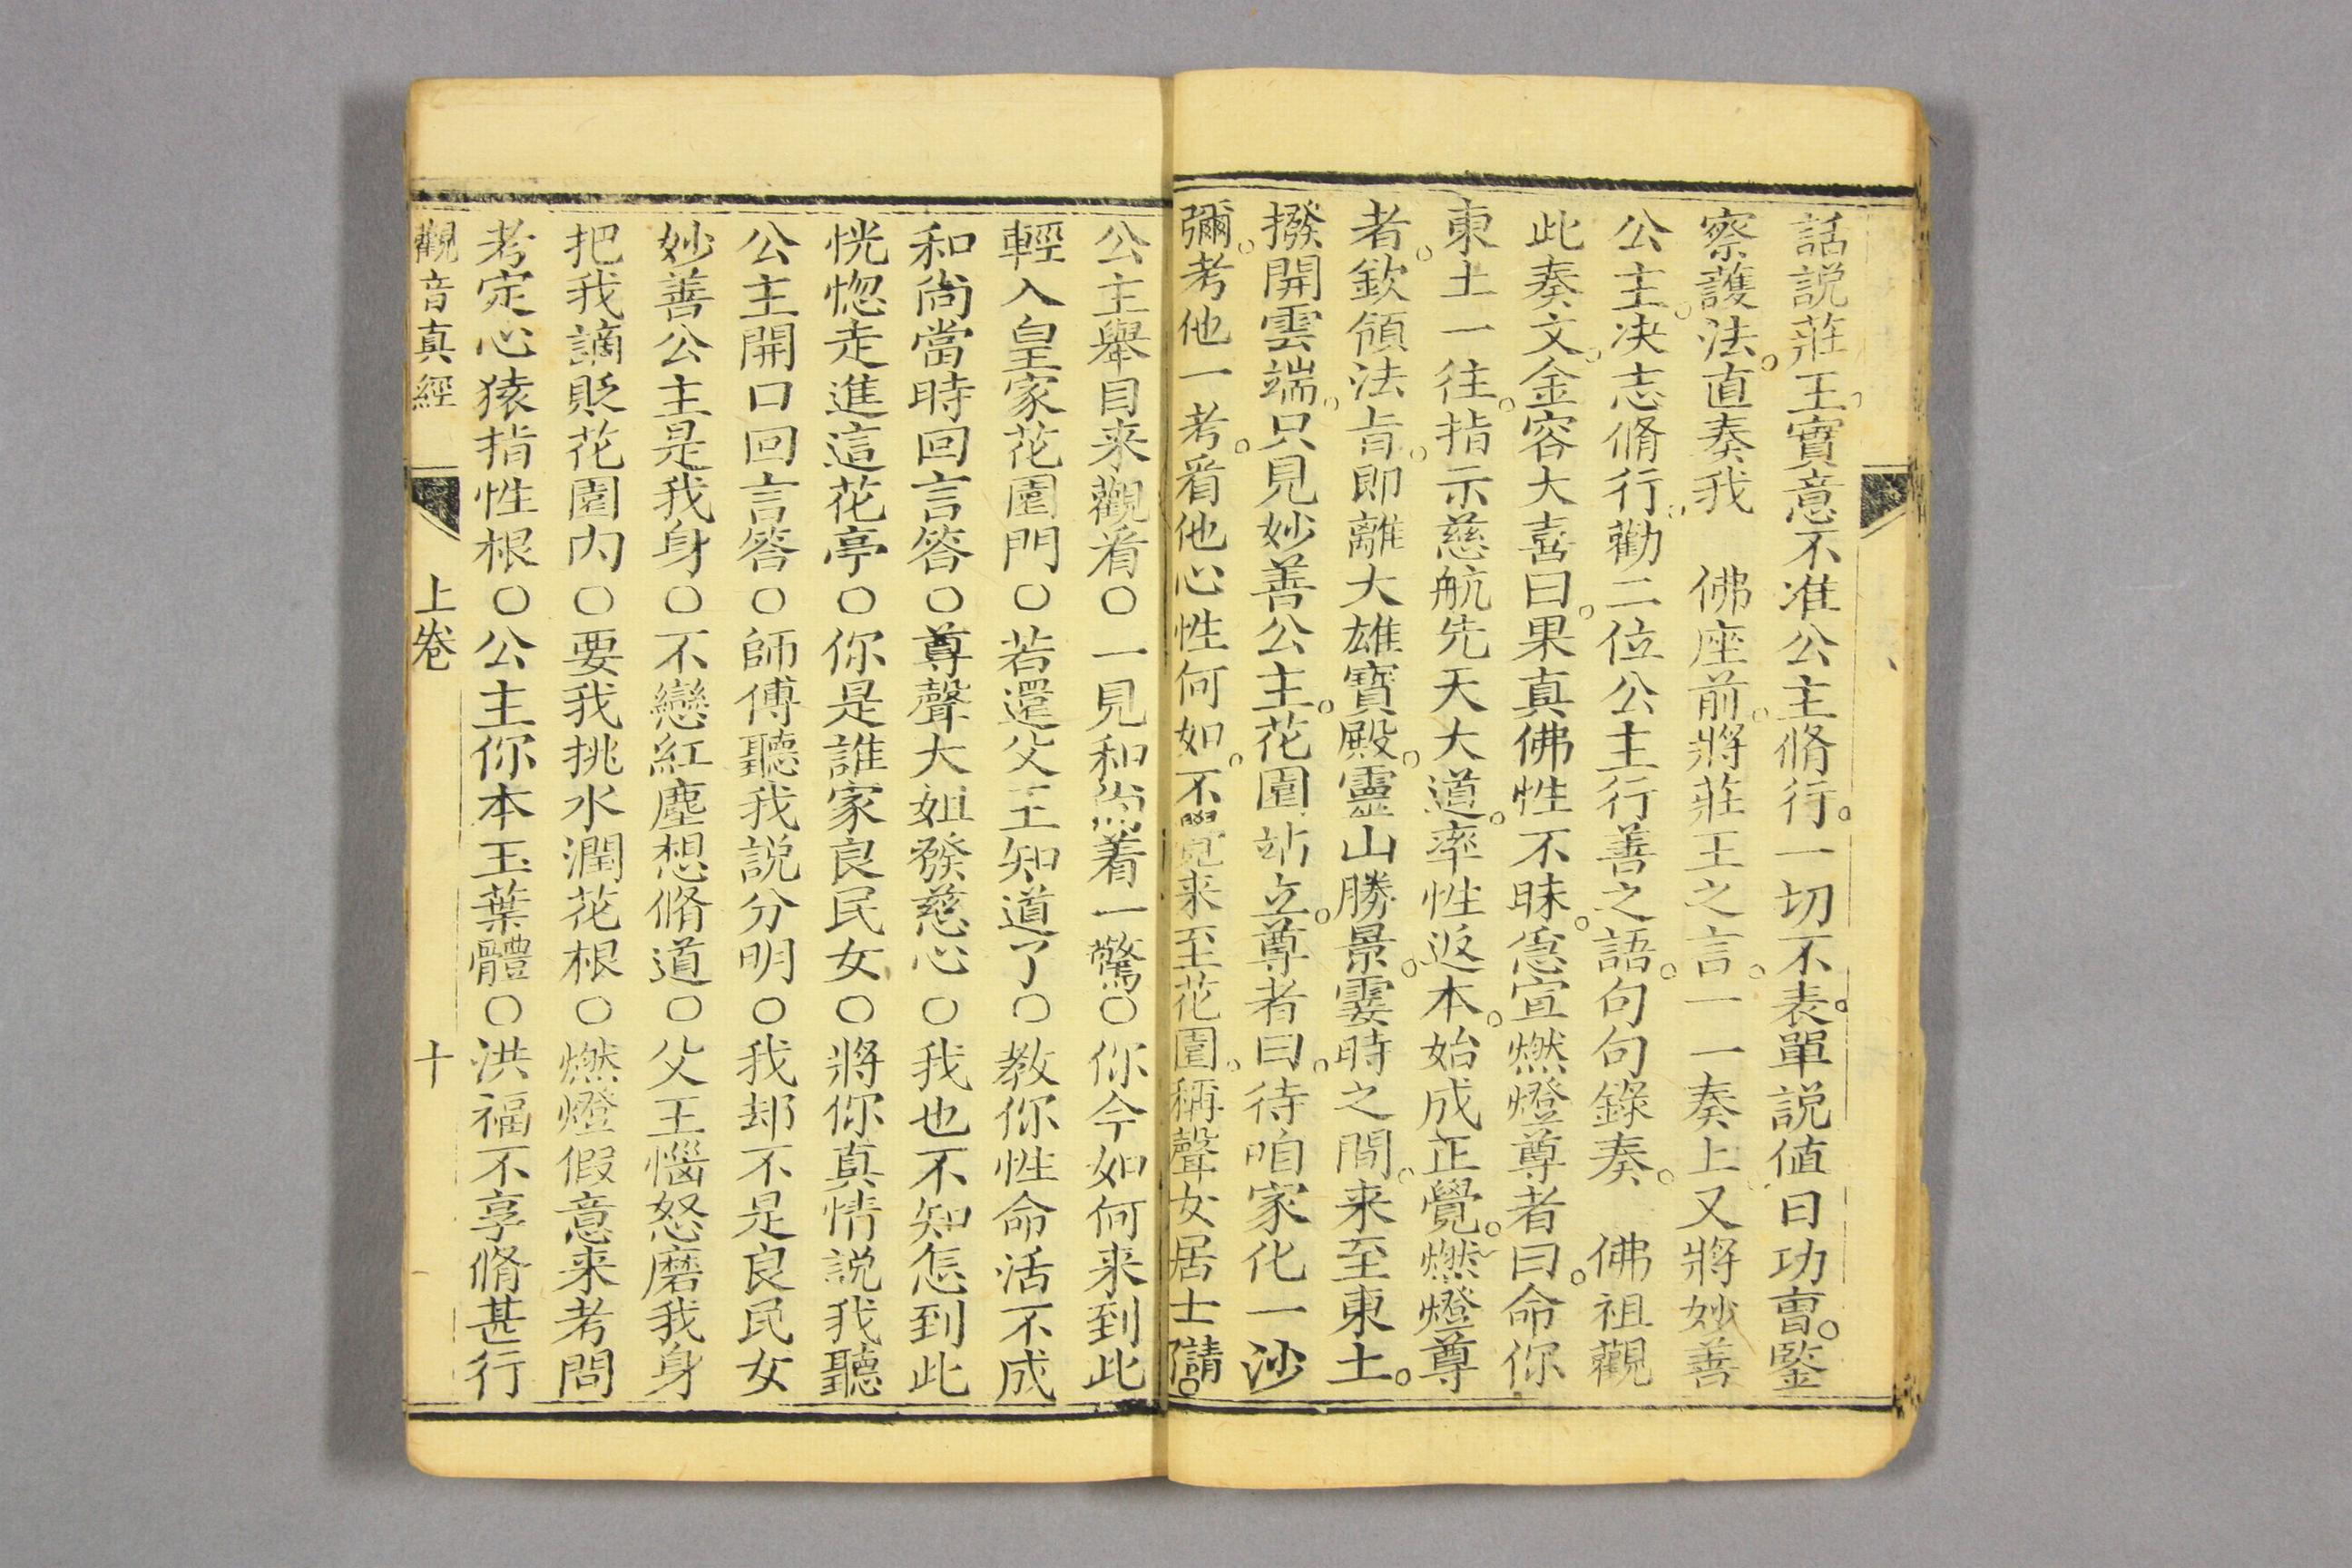 話説莊王。實意不准公主脩行。一切不表。單説値日功曺。鍳
察護法。直奏我　佛座前。將莊王之言。一一奏上。又將妙善
公主。决志脩行。勸二位公主行善之語。句句錄奏。　佛祖觀
此奏文。金容大喜曰。果真佛性不昧。急宣燃燈尊者曰。命你
東土一往。指示慈航先天大道。率性返本。始成正覺。燃燈尊
者。欽領法旨。即離大雄寶殿。靈山勝景。霎時之間。来至東土。
撥開雲端。只見妙善公主。花園站立。尊者曰。待咱家化一沙
彌。考他一考。看他心性何如。不覺来至花園。稱聲女居士請。
公主舉目来觀看○一見和尚着一驚○你今如何来到此
輕入皇家花園門○若還父王知道了○教你性命活不成
和尚當時回言答○尊聲大姐發慈心○我也不知怎到此
恍惚走進這花亭○你是誰家良民女○將你真情説我聽
公主開口回言答○師傅聽我説分明○我却不是良民女
妙善公主是我身○不戀紅塵想脩道○父王惱怒磨我身
把我謫貶花園内○要我挑水潤花根○燃燈假意来考問
考定心猿指性根○公主你本玉葉體○洪福不享脩甚行
觀音真經　上卷　十